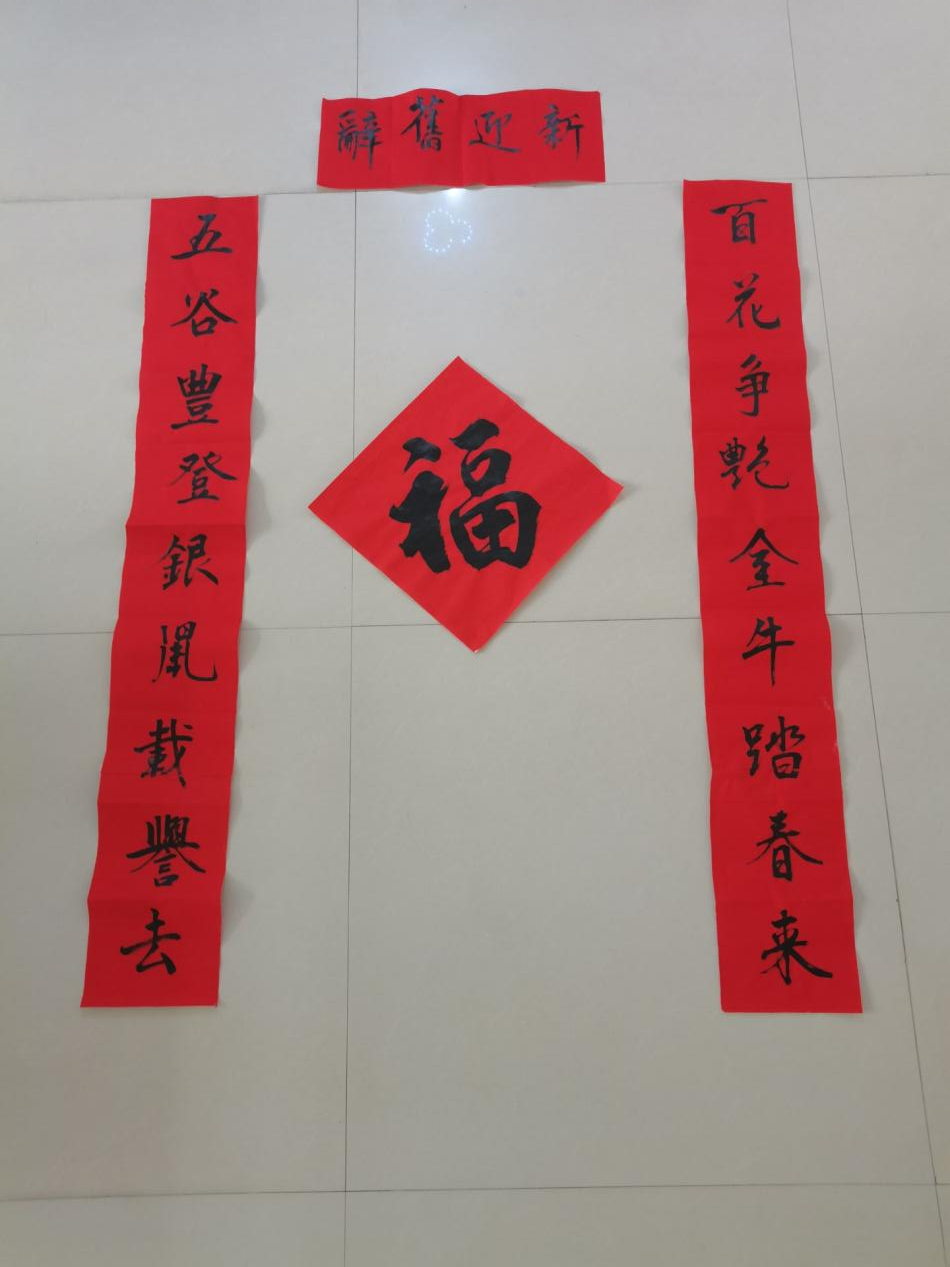 辭舊迎新
五谷豐登銀鼠載譽去
百花争艷金牛踏春来
福